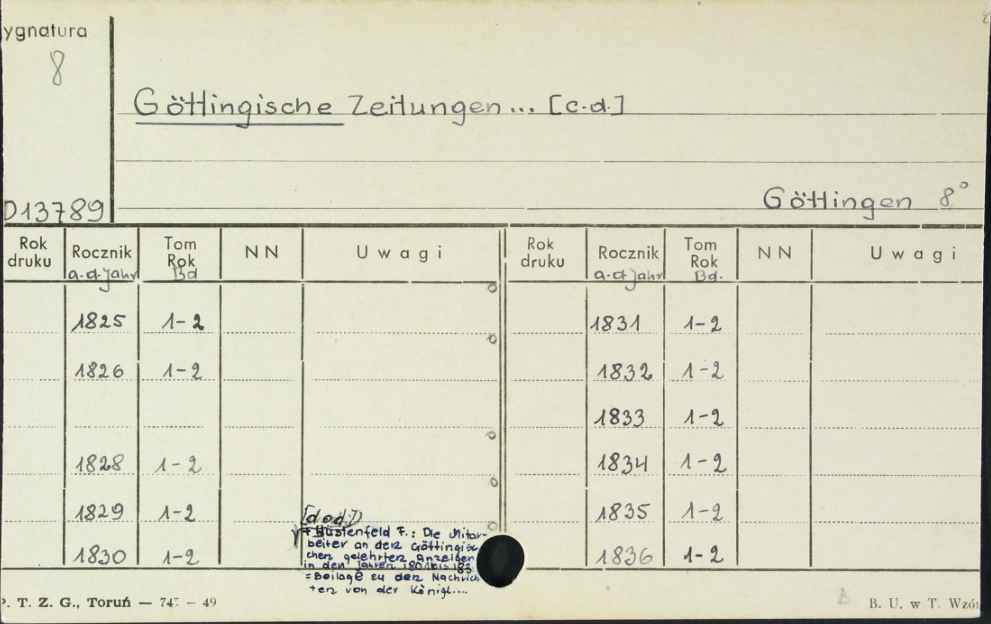 ygnatura
8
Göttingische Zeitungen... [c.d.]
D13789
Göttingen 8°
Rok druku Rocznik a.d. Jahr Tom Rok Bd NN Uwagi Rok druku Rocznik a.d. Jahr Tom Rok Bd. NN Uwagi
1825 1-2 1831 1-2
1826 1-2 1832 1-2
1833 1-2
1828 1-2 1834 1-2
1829 1-2 1835 1-2
1830 1-2 1836 1-2
[dod.]
Wüstenfeld F.: Die Mitar-
beiter an den Göttingis
chen gelehrten Anzeigen
in den Jahren 1801 bis 183
= Beilage zu den Nachrich
ten von der Königl....
P. T. Z. G., Toruń — 49
B. U. w T. Wzór